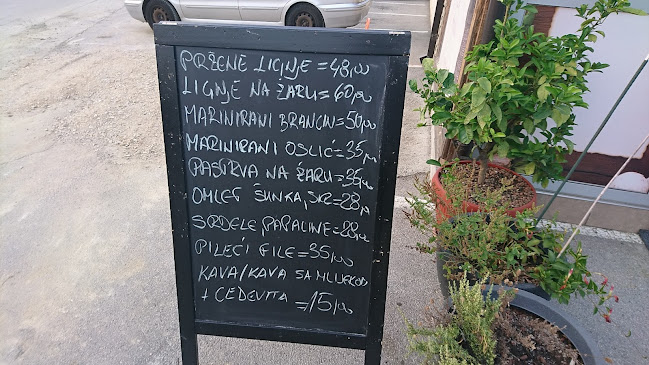 PRŽENE LIGNJE = 48,00
LIGNJE NA ŽARU = 60,00
MARINIRANI BRANCIN = 50,00
MARINIRANI OSLIĆ = 35,00
PASTRVA NA ŽARU = 35,00
OMLET ŠUNKA, SIR = 28,00
SRDELE, PAPALINE = 28,00
PILEĆI FILE = 35,00
KAVA/KAVA SA MLIJEKOM
+ CEDEVITA = 15,00